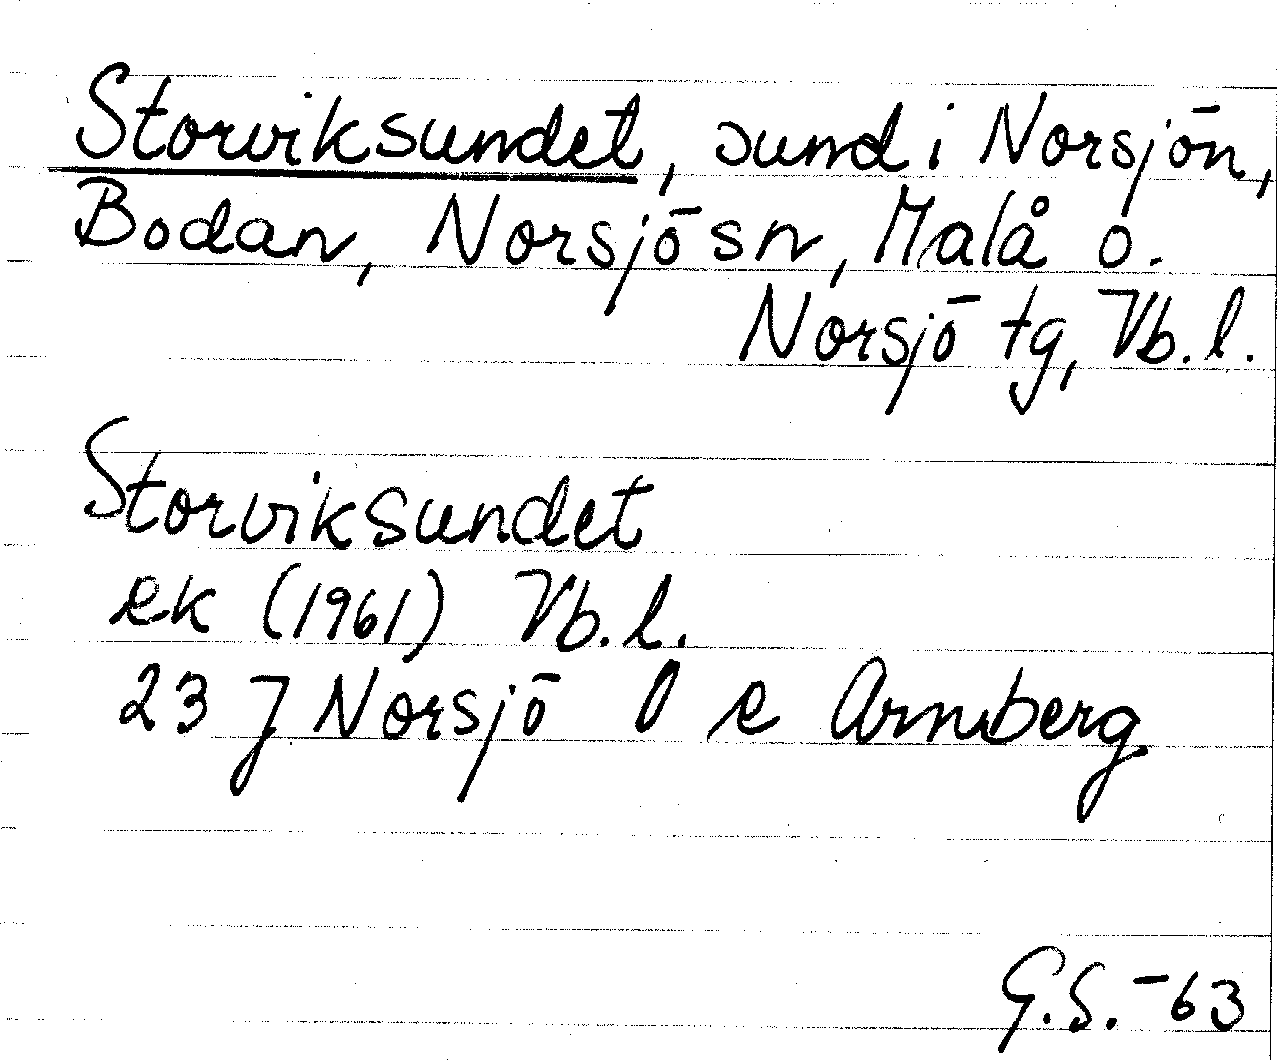 Storviksundet, sund i Norsjön,
Bodan, Norsjö sn, Malå o.
Norsjö tg, Vb. l.
Storviksundet
ek (1961) Vb. l.
23 J Norsjö O e Arnberg
G.S. -63